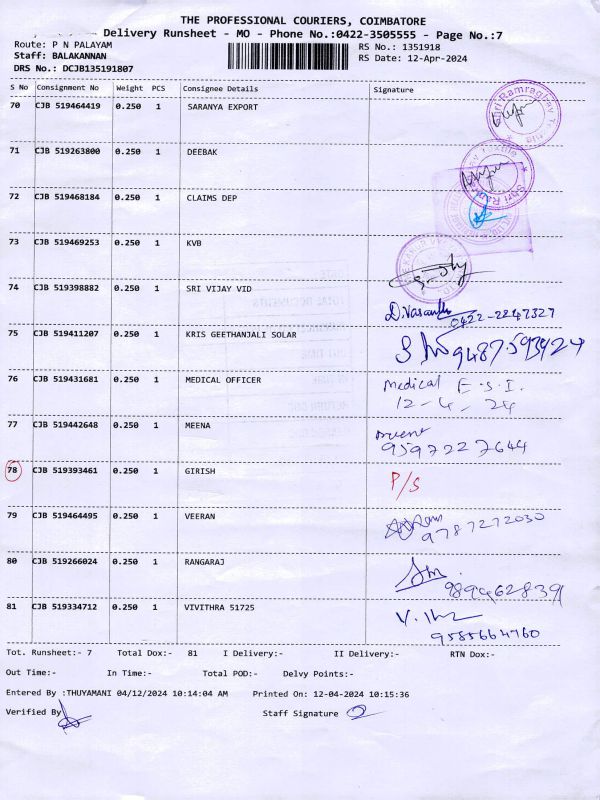 THE PROFESSIONAL COURIERS, COIMBATORE
Delivery Runsheet - MO - Phone No.:0422-3505555 - Page No.:7
Route: P N PALAYAM
RS No.: 1351918
Staff: BALAKANNAN
RS Date: 12-Apr-2024
DRS No.: DCJB135191807
S No Consignment No Weight PCS Consignee Details Signature
70 CJB 519464419 0.250 1 SARANYA EXPORT
Shri Ramraghav
71 CJB 519263800 0.250 1 DEEBAK
72 CJB 519468184 0.250 1 CLAIMS DEP
73 CJB 519469253 0.250 1 KVB
74 CJB 519398882 0.250 1 SRI VIJAY VID
D. Vasantha
0422-2247327
75 CJB 519411207 0.250 1 KRIS GEETHANJALI SOLAR
76 CJB 519431681 0.250 1 MEDICAL OFFICER medical E.S.I.
12-4-24
77 CJB 519442648 0.250 1 MEENA
9597227644
78 CJB 519393461 0.250 1 GIRISH P/S
79 CJB 519464495 0.250 1 VEERAN
9787272030
80 CJB 519266024 0.250 1 RANGARAJ
9894628391
81 CJB 519334712 0.250 1 VIVITHRA 51725
9585664760
Tot. Runsheet:- 7 Total Dox:- 81 I Delivery:- II Delivery:- RTN Dox:-
Out Time:- In Time:- Total POD:- Delvy Points:-
Entered By :THUYAMANI 04/12/2024 10:14:04 AM Printed On: 12-04-2024 10:15:36
Verified By
Staff Signature